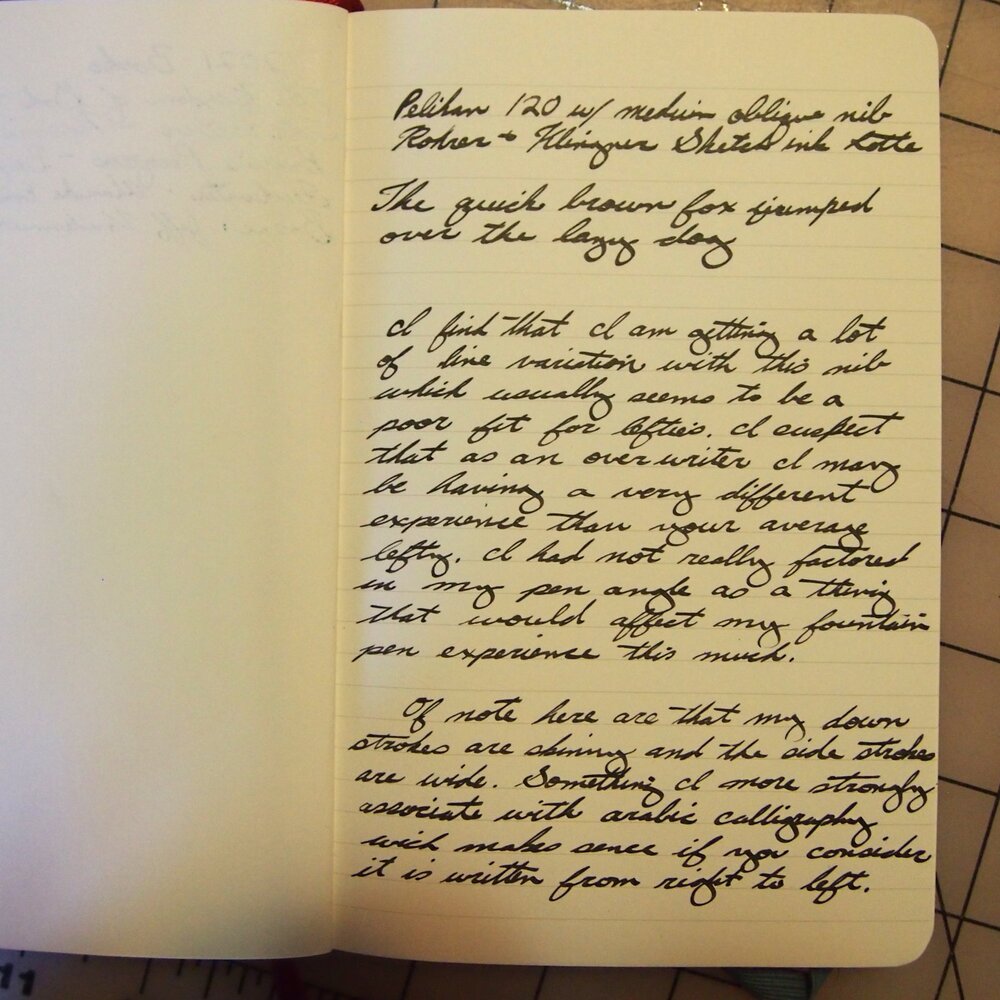 Pelikan 120 w/ medium oblique nib
Rohrer + Klingner Sketch ink Lotte
The quick brown fox jumped
over the lazy dog
I find that I am getting a lot
of line variation with this nib
which usually seems to be a
poor fit for lefties. I suspect
that as an over writer I may
be having a very different
experience than your average
lefty. I had not really factored
in my pen angle as a thing
that would affect my fountain
pen experience this much.
Of note here are that my down
strokes are skinny and the side strokes
are wide. Something I more strongly
associate with arabic calligraphy
wich makes sence if you consider
it is written from right to left.
11